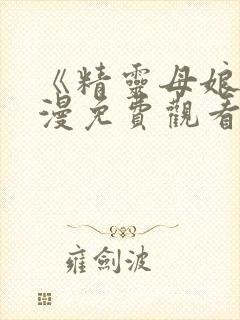 《精靈母娘
漫免費觀看
雍劍波